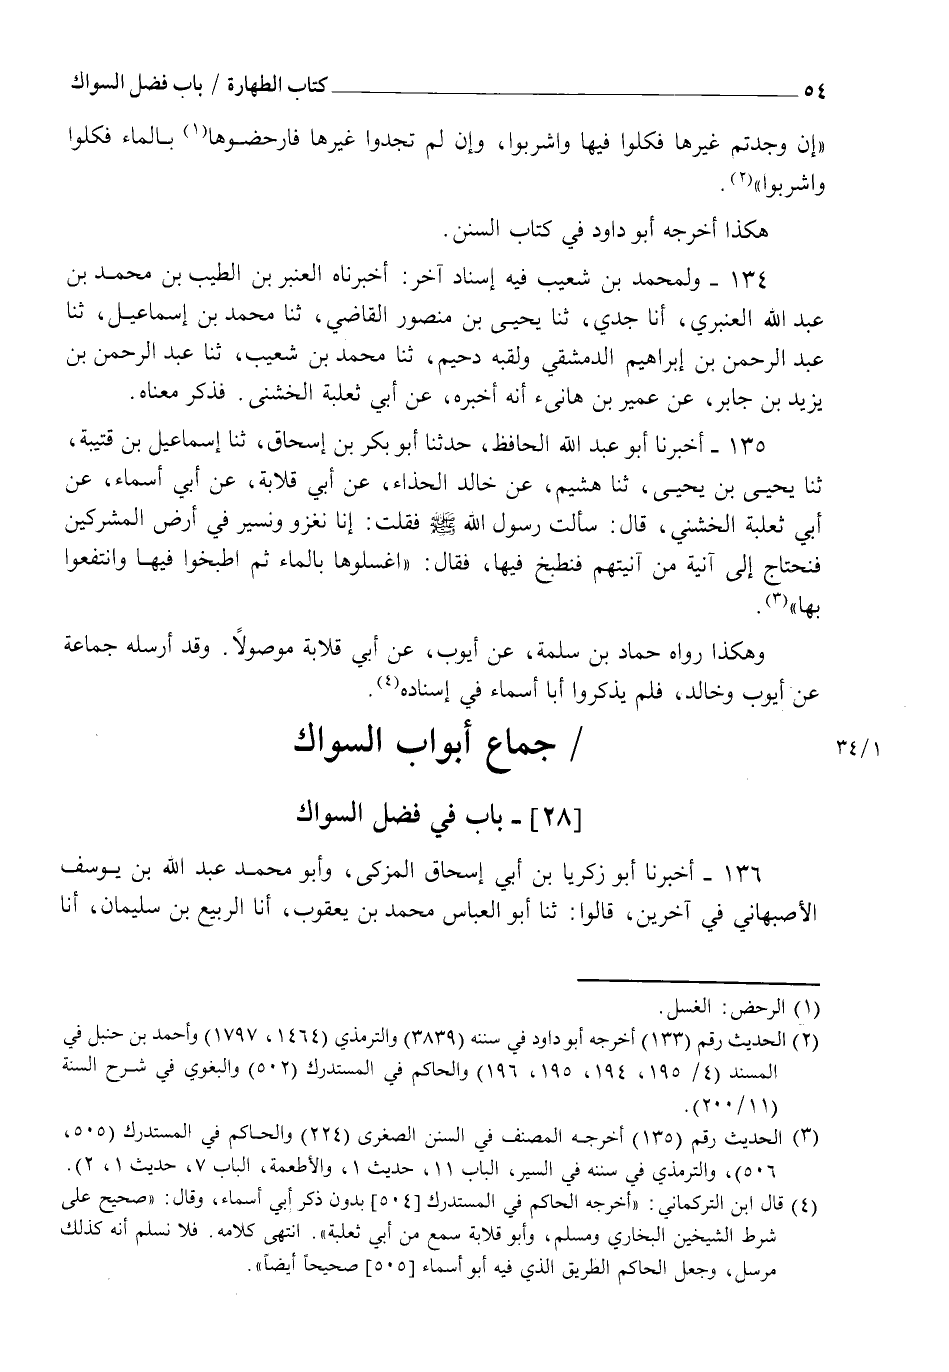 ٥٤ كتاب الطهارة / باب فضل السواك
«إن وجدتم غيرها فكلوا فيها واشربوا، وإن لم تجدوا غيرها فارحضوها(١) بالماء فكلوا
واشربوا»(٢).
هكذا أخرجه أبو داود في كتاب السنن.
١٣٤ ـ ولمحمد بن شعيب فيه إسناد آخر: أخبرناه العنبر بن الطيب بن محمد بن
عبد الله العنبري، أنا جدي، ثنا يحيى بن منصور القاضي، ثنا محمد بن إسماعيل، ثنا
عبد الرحمن بن إبراهيم الدمشقي ولقبه دحيم، ثنا محمد بن شعيب، ثنا عبد الرحمن بن
يزيد بن جابر، عن عمير بن هانىء أنه أخبره، عن أبي ثعلبة الخشنى. فذكر معناه.
١٣٥ ـ أخبرنا أبو عبد الله الحافظ، حدثنا أبو بكر بن إسحاق، ثنا إسماعيل بن قتيبة،
ثنا يحيى بن يحيى، ثنا هشيم، عن خالد الحذاء، عن أبي قلابة، عن أبي أسماء، عن
أبي ثعلبة الخشني، قال: سألت رسول الله ﷺ فقلت: إنا نغزو ونسير في أرض المشركين
فنحتاج إلى آنية من آنيتهم فنطبخ فيها، فقال: «اغسلوها بالماء ثم اطبخوا فيها وانتفعوا
بها»(٣).
وهكذا رواه حماد بن سلمة، عن أيوب، عن أبي قلابة موصولاً. وقد أرسله جماعة
عن أيوب وخالد، فلم يذكروا أبا أسماء في إسناده(٤).
٣٤/١ / جماع أبواب السواك
[٢٨] ـ باب في فضل السواك
١٣٦ ـ أخبرنا أبو زكريا بن أبي إسحاق المزكى، وأبو محمد عبد الله بن يوسف
الأصبهاني في آخرين، قالوا: ثنا أبو العباس محمد بن يعقوب، أنا الربيع بن سليمان، أنا
(١) الرحض: الغسل.
(٢) الحديث رقم (١٣٣) أخرجه أبو داود في سننه (٣٨٣٩) والترمذي (١٤٦٤، ١٧٩٧) وأحمد بن حنبل في
المسند (٤/ ١٩٥، ١٩٤، ١٩٥، ١٩٦) والحاكم في المستدرك (٥٠٢) والبغوي في شرح السنة
(٢٠٠/١١).
(٣) الحديث رقم (١٣٥) أخرجه المصنف في السنن الصغرى (٢٢٤) والحاكم في المستدرك (٥٠٥،
٥٠٦)، والترمذي في سننه في السير، الباب ١١، حديث ١، والأطعمة، الباب ٧، حديث ١، ٢).
(٤) قال ابن التركماني: «أخرجه الحاكم في المستدرك [٥٠٤] بدون ذكر أبي أسماء، وقال: «صحيح على
شرط الشيخين البخاري ومسلم، وأبو قلابة سمع من أبي ثعلبة». انتهى كلامه. فلا نسلم أنه كذلك
مرسل، وجعل الحاكم الطريق الذي فيه أبو أسماء [٥٠٥] صحيحاً أيضاً».